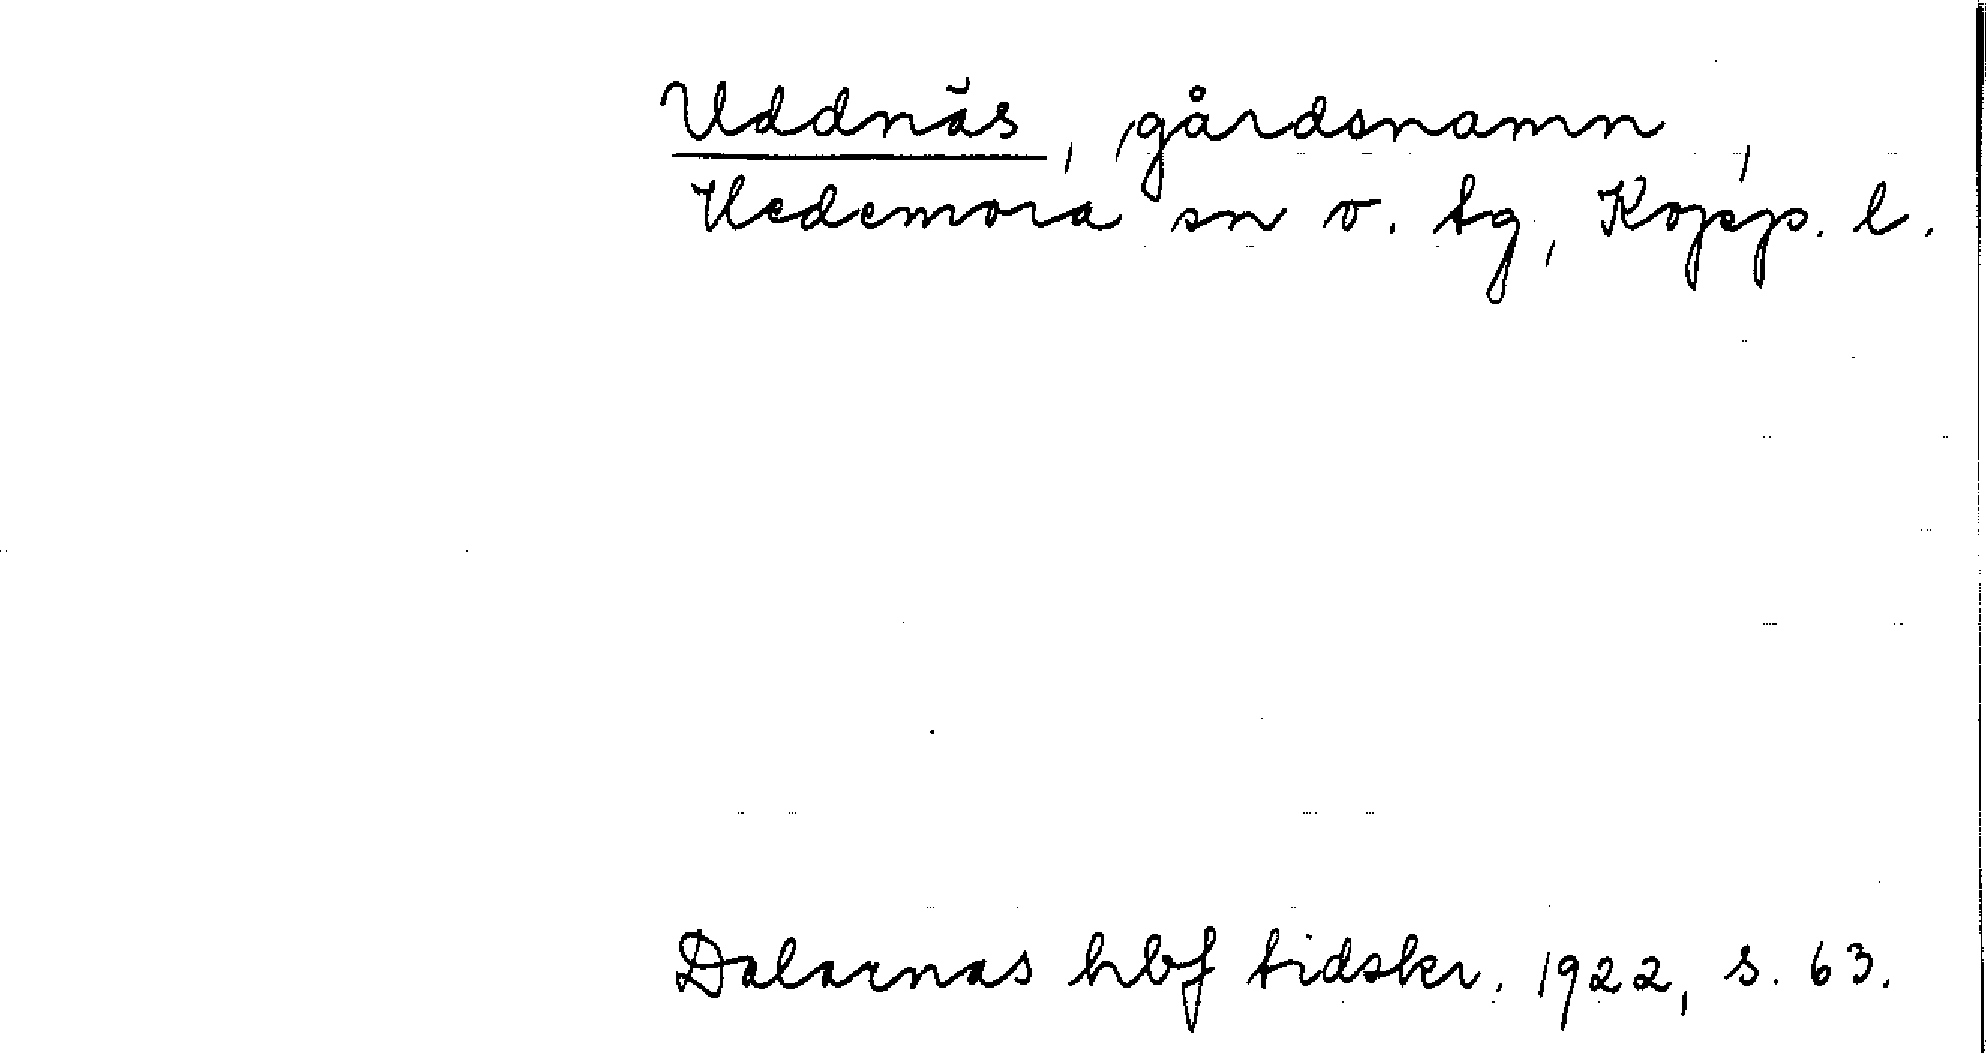 Uddnäs, gårdsnamn,
Hedemora sn o. tg, Kopp. l.
Dalarnas hbf tidskr. 1922, s. 63.